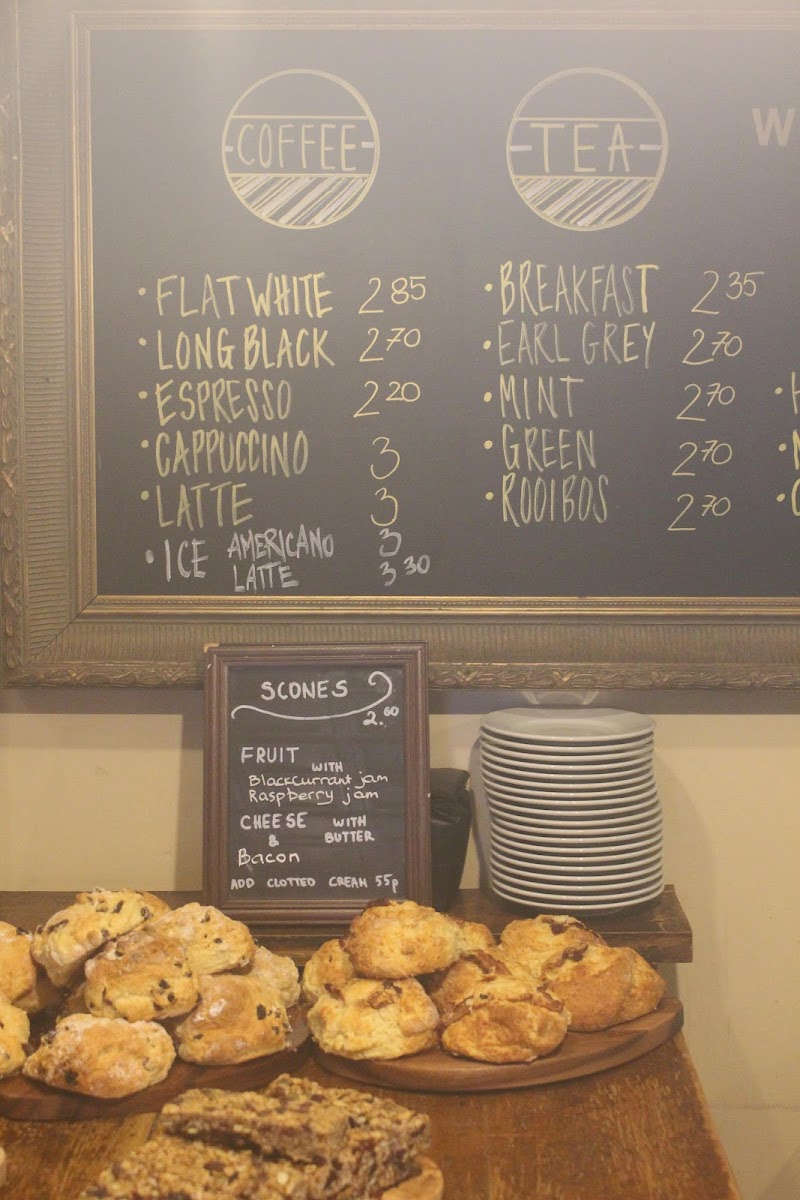 COFFEE
• FLAT WHITE 2 85
• LONG BLACK 2 70
• ESPRESSO 2 20
• CAPPUCCINO 3
• LATTE 3
• ICE AMERICANO 3
LATTE 3 30
TEA
• BREAKFAST 2 35
• EARL GREY 2 70
• MINT 2 70
• GREEN 2 70
• ROOIBOS 2 70
W
SCONES
2.60
FRUIT WITH
Blackcurrant jam
Raspberry jam
CHEESE WITH
& BUTTER
Bacon
ADD CLOTTED CREAM 55p